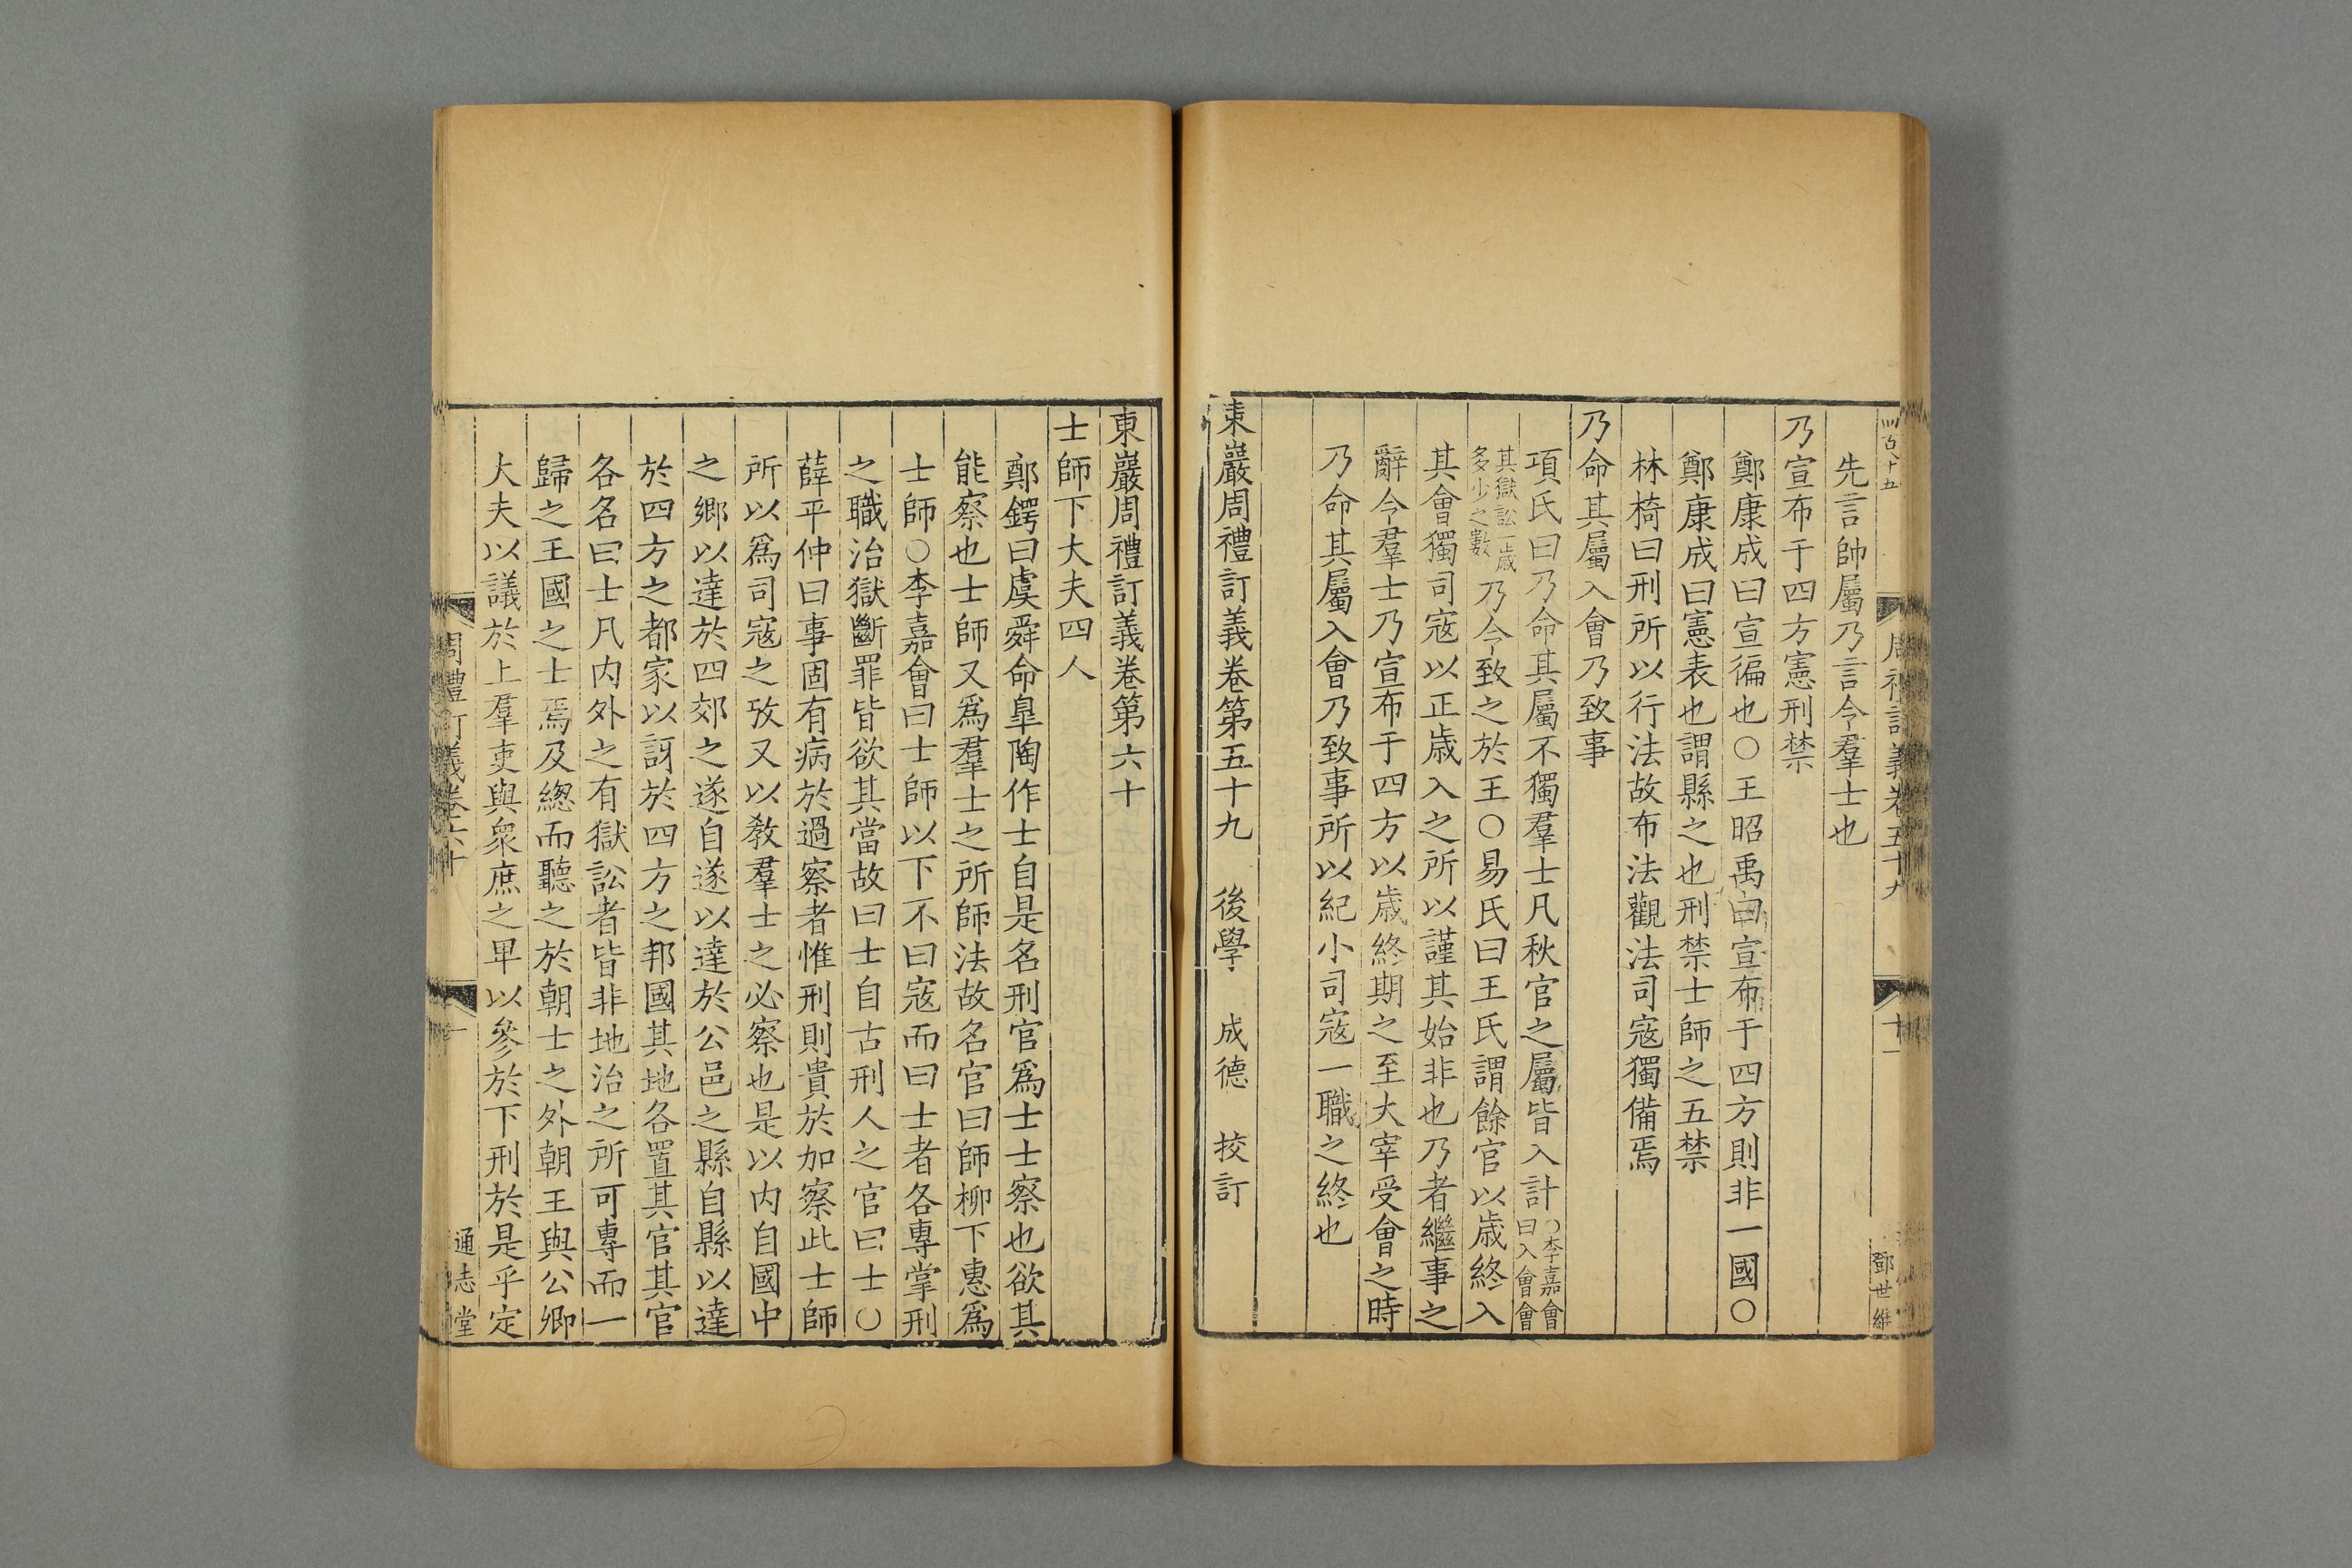 先言帥屬乃言令羣士也
乃宣布于四方憲刑禁
鄭康成曰宣徧也○王昭禹曰宣布于四方則非一國○
鄭康成曰憲表也謂縣之也刑禁士師之五禁
林椅曰刑所以行法故布法觀法司寇獨備焉
乃命其屬入會乃致事
項氏曰乃命其屬不獨羣士凡秋官之屬皆入計○李嘉會曰入會會
其獄訟一歲多少之數乃令致之於王○易氏曰王氏謂餘官以歲終入
其會獨司寇以正歲入之所以謹其始非也乃者繼事之
辭今羣士乃宣布于四方以歲終期之至大宰受會之時
乃命其屬入會乃致事所以紀小司寇一職之終也
東巖周禮訂義卷第五十九 後學 成德 挍訂
鄧世維
東巖周禮訂義卷第六十
士師下大夫四人
鄭鍔曰虞舜命臯陶作士自是名刑官爲士士察也欲其
能察也士師又爲羣士之所師法故名官曰師柳下惠爲
士師○李嘉會曰士師以下不曰寇而曰士者各專掌刑
之職治獄斷罪皆欲其當故曰士自古刑人之官曰士○
薛平仲曰事固有病於過察者惟刑則貴於加察此士師
所以爲司寇之攷又以敎羣士之必察也是以内自國中
之鄉以達於四郊之遂自遂以達於公邑之縣自縣以達
於四方之都家以訝於四方之邦國其地各置其官其官
各名曰士凡内外之有獄訟者皆非地治之所可專而一
歸之王國之士焉及緫而聽之於朝士之外朝王與公卿
大夫以議於上羣吏與衆庶之卑以參於下刑於是乎定
周禮訂義卷六十 一 通志堂